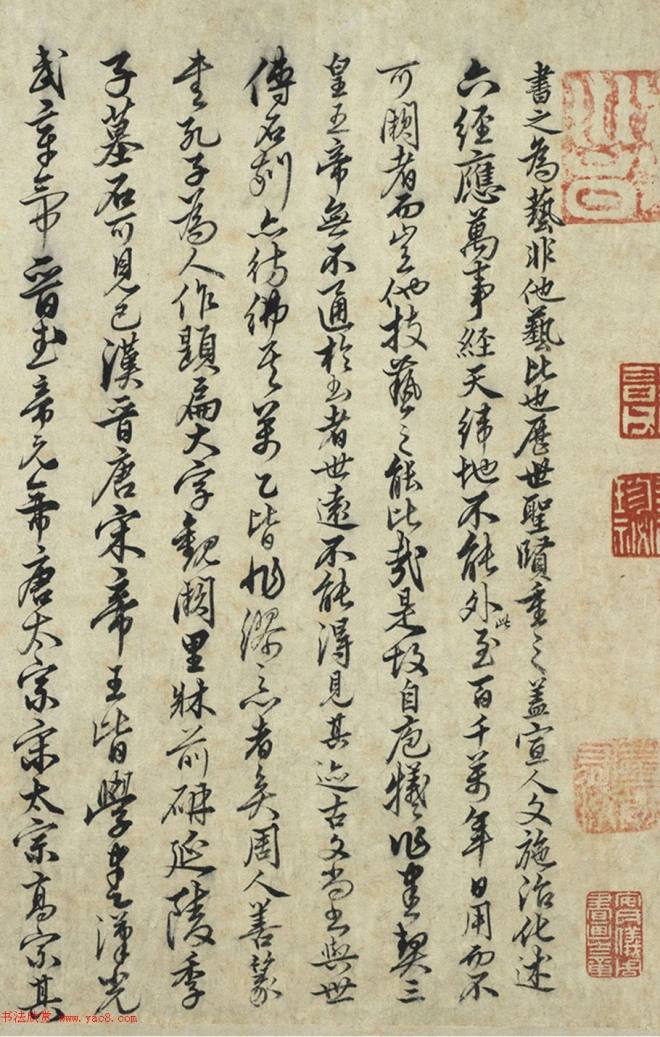 書之為藝非他藝比也歷世聖賢重之蓋宣人文施治化述
六經應萬事經天緯地不能外此至百千萬年日用而不
可闕者而豈他技藝之能比哉是故自庖犧作書契三
皇五帝無不通於書者世遠不能得見其迹古文尚書與世
傳石刻亦彷彿其萬乙皆非繆忘者矣周人善篆
書孔子為人作題扁大字觀闕里牀前碑延陵季
子墓石可見已漢晉唐宋帝王皆學書漢光
武章帝晉武帝元帝唐太宗宋太宗高宗其
书法欣赏 www.yac8.com